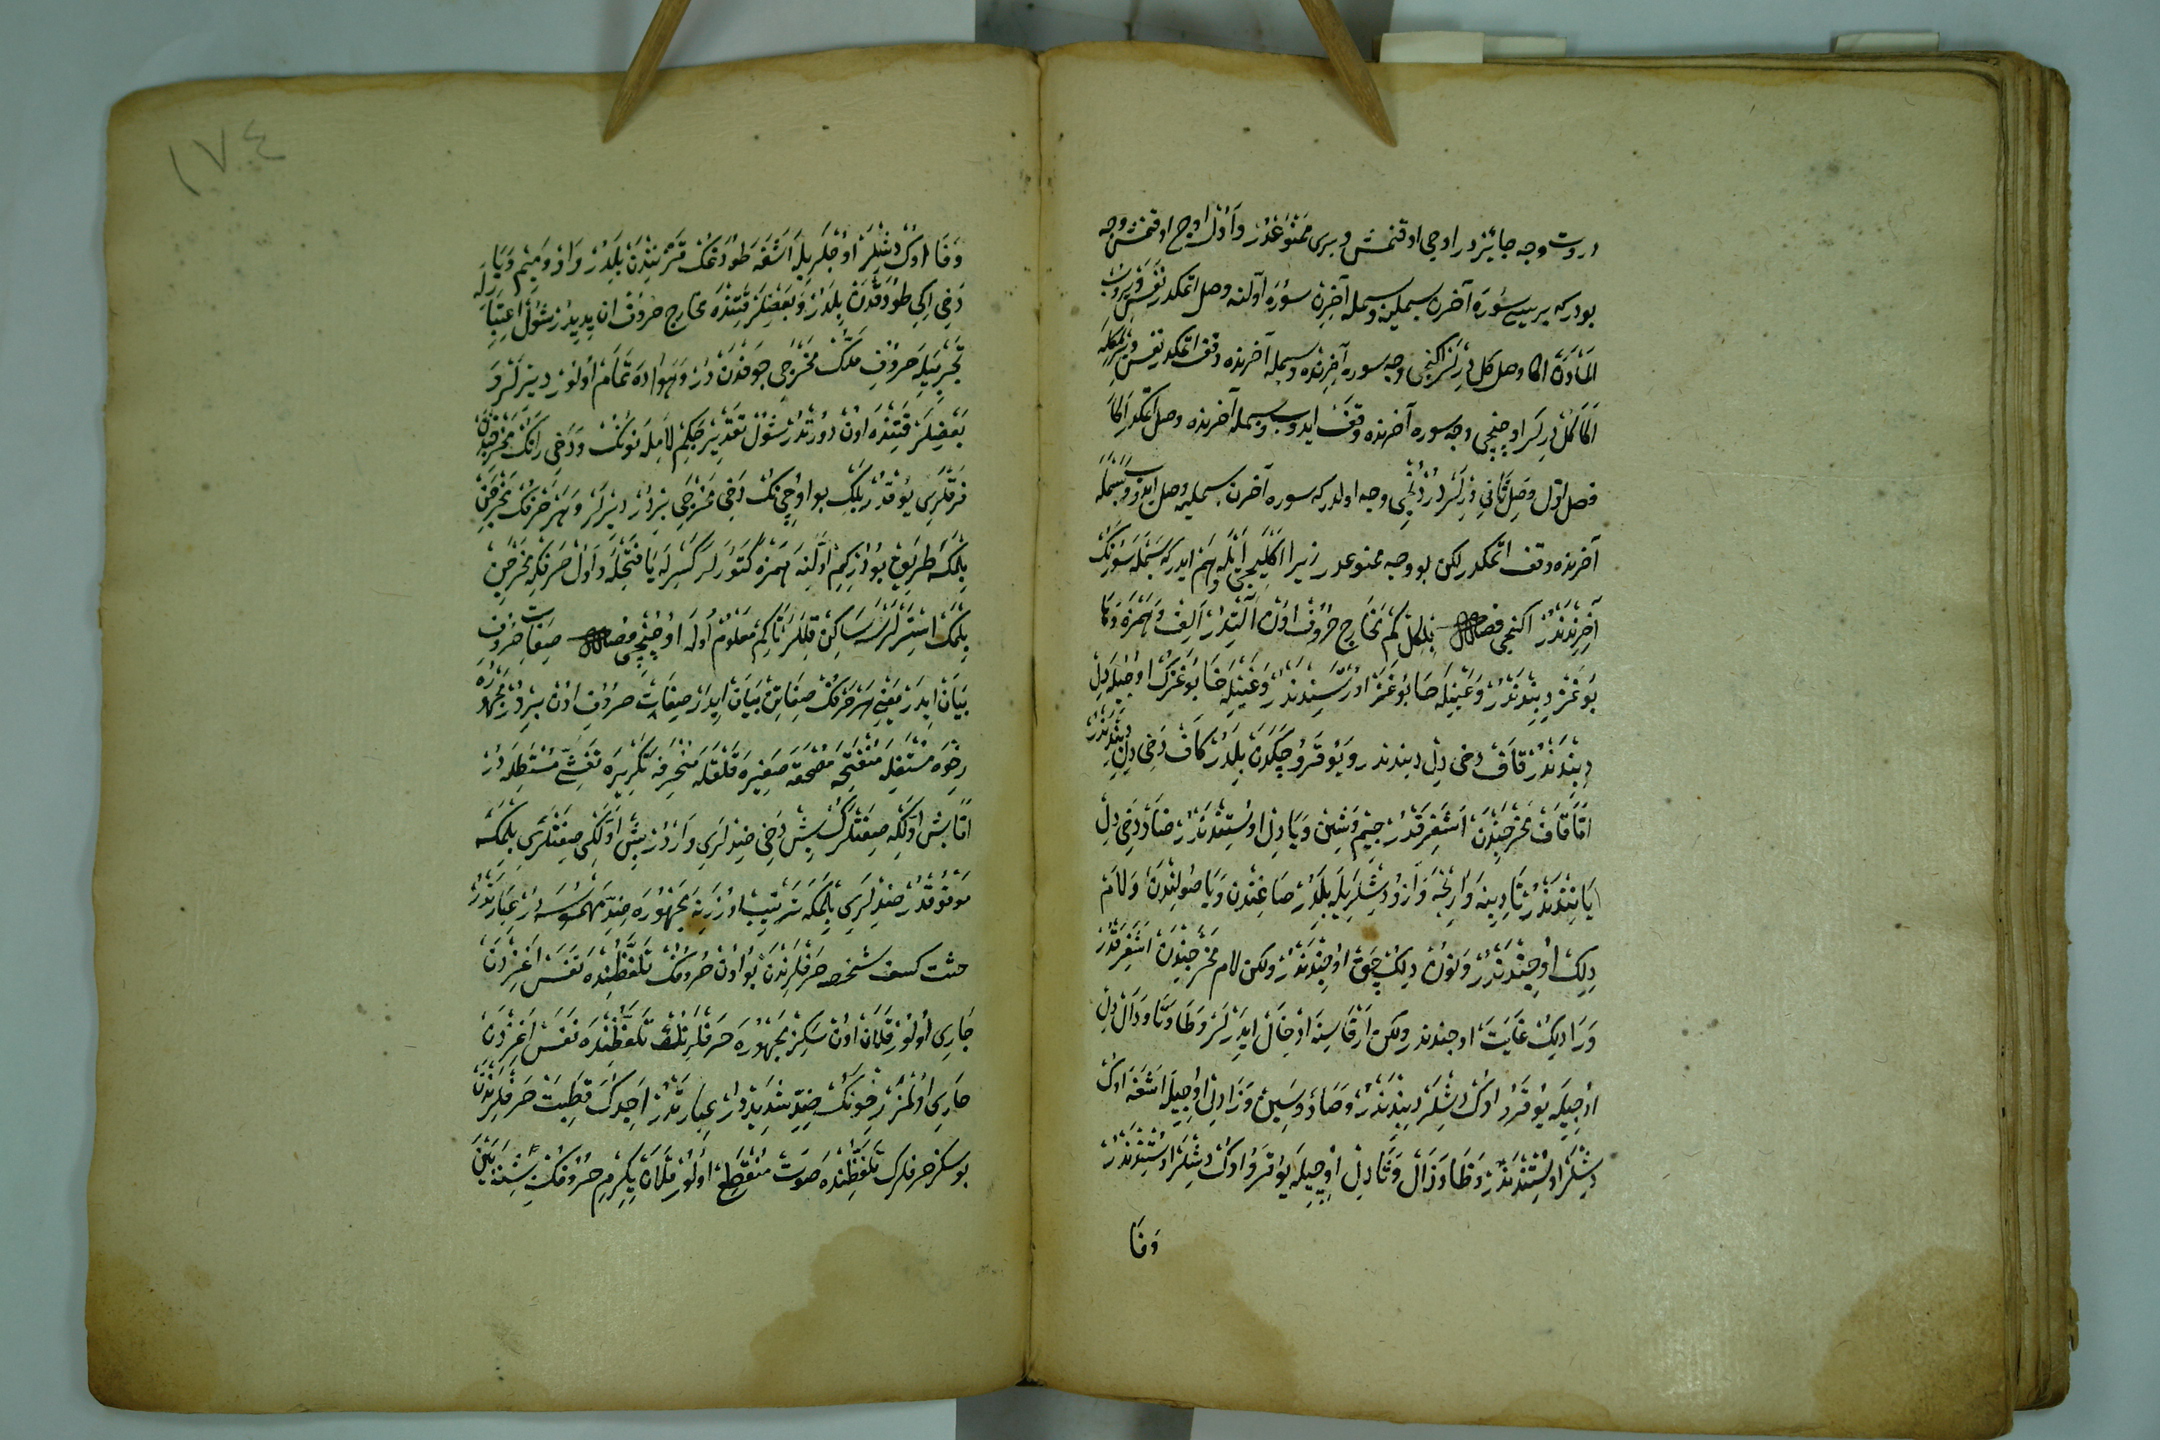 دروت وجه جائزدر اوچی اوقنمش و بری ممنوعدر و اول اوچ اوقنمش وجه
بودركه بریسی سوره آخرن بسملیه و بسمله آخرن سوره اولنه وصل اتمكدر نفس
وصل كل دیرلر اكنجی وجه سوره آخرنده و بسمله آخرنده وقف اتمكدر نفس
دیرلر اوچنچی وجه سوره آخرنده وقف ایدوب و بسمله آخرنده وصل اتمكدر
فصل اول وصل ثانی دیرلر دردنجی وجه اولدر كه سوره آخرن بسملیه وصل ایدوب و بسمله
آخرنده وقف اتمكدر لكن بو وجه ممنوعدر زیرا ایله وهم ایدر كه بسمله سورنك
آخرندندر اكنجی فصل بلكل كم مخارج حروف اون التیدر الف و همزه و ها
بوغز دیبندندر و عینله حا بوغز اورتسندندر و غینله خا بوغزك اوجیله دل
دیبندندر قاف دخی دل دیبندندر و یوقرو چكدن بلدر كاف دخی دل دیبندندر
اما قاف مخرجندن اشغرقدر جیم و شین و یا دل اوستندندر ضاد دخی دل
یانندندر تا دیینه وارنجه وازو دشلریله بلدر صاغندن و یا صولندن و لام
دلك اوجندندر و نون دلك چوق اوجندندر ولكن لام مخرجندن اشغرقدر
و را دلك غایت اوجندندر ولكن ارقاسنه ادخال ایدرلر و طا و تا و دال دل
اوجیله یوقرو اوك دشلر دیبندندر و صاد و سین و زا دل اوجیله اشغه اوك
دشلر اوستندندر و ظا و ذال و ثا دل اوجیله یوقرو اوك دشلر اوستندندر
و فا
١٧٤
و فا اوك دشلر اوجلریله اشغه طودغك قرنندن بلدر و واو و میم و با
دخی اكی طودقدن بلدر و بعضلر قتنده مخارج حروف اون یدیدر شول اعتبار
نجه بیله حروف مدك مخرجی جوفدن در و هواده تمام اولور دیرلر و
بعضلر قتنده اون دورتدر شول تقدیرجه كیم لامله نونك و دخی رانك مخرجندن
فرقلری یوقدر بلكه بو اوچنك دخی مخرجی بردر دیرلر و هر حرفك مخرجن
بلمكه طریق بودر كیم اولنه همزه كتورلر كسرله یا فتحله و اول حرفك مخرجن
بلمك استرلرسه ساكن قلالر تا كیم معلوم اوله اوچنجی فصل صفات حروف
بیان ایدر یعنی هر حرفك صفاتن بیان ایدر صفات حروف اون بردر مجهوره
رخوه مستفله منفتحه مصمته صفیره قلقله منحرفه تكریره تفشی مستطله در
اما بش اولكی صفتلرك بش دخی ضدلری واردر بش اولكی صفتلری بلمكه
موقوقدر ضدلری بلمكه ترتیب اوزرنه مجهوره ضد مهموسه در عبارتدر
حثت كسف شخصه حرفلرندن بو اون حروفك تلفظنده نفس اغزدن
جاری اولور قلان اون سكز مجهوره حرفلرنك تلفظنده نفس اغزدن
جاری اولمز رخونك ضدی شدیددر عبارتدر اجدك قطبت حرفلرندن
بو سكز حرفلرك تلفظنده صوت منقطع اولور قلان یكرمی حروفك بشنه بین